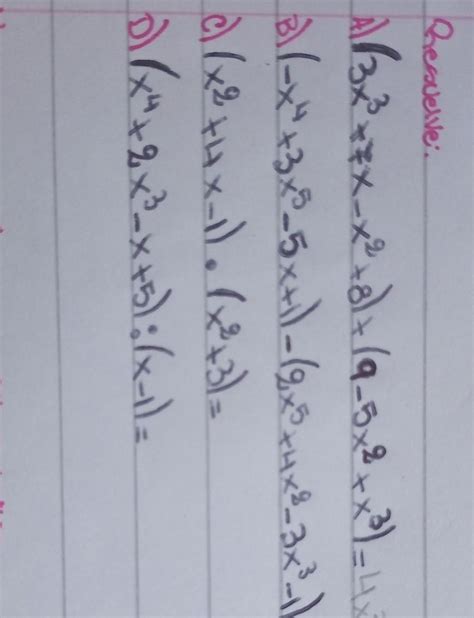 Resuelve:
A) (3x³ + 7x - x² + 8) + (9 - 5x² + x³) = 4x
B) (-x⁴ + 3x⁵ - 5x + 1) - (2x⁵ + 4x² - 3x³ - 1)
C) (x² + 4x - 1) · (x² + 3) =
D) (x⁴ + 2x³ - x + 5) : (x - 1) =